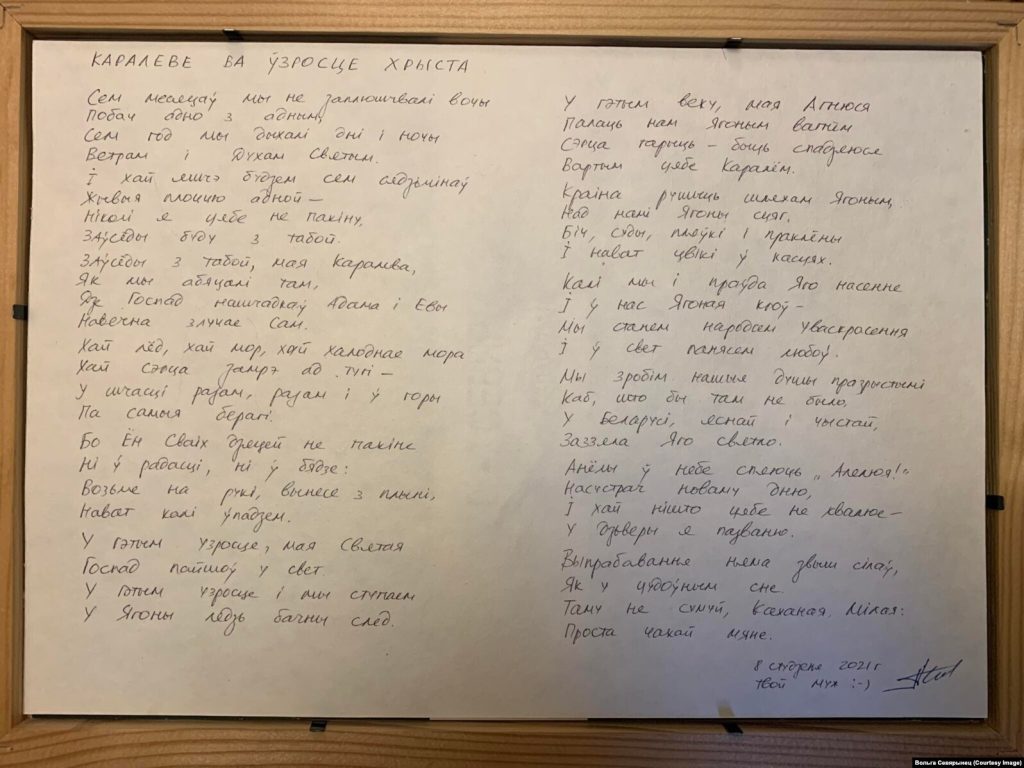 КАРАЛЕВЕ ВА ЎЗРОСЦЕ ХРЫСТА
Сем месяцаў мы не заплюшчвалі вочы
Побач адно з адным,
Сем год мы дыхалі дні і ночы
Ветрам і Духам Святым.
І хай яшчэ будзем сем сядзьмінаў
Жывыя плоццю адной –
Ніколі я цябе не пакіну,
Заўсёды буду з табой.
Заўсёды з табой, мая Каралева,
Як мы абяцалі там,
Дзе Госпад нашчадкаў Адама і Евы
Навечна злучае Сам.
Хай лёд, хай мор, хай халоднае мора
Хай сэрца замрэ ад тугі –
У шчасці разам, разам і ў горы
Па самыя берагі.
Бо Ён Сваіх дзяцей не пакіне
Ні ў радасці, ні ў бядзе:
Возьме на рукі, вынесе з плыні,
Нават калі ўпадзем.
У гэтым узросце, мая Святая
Госпад пайшоў у свет.
У гэтым узросце і мы ступаем
У Ягоны лёдзь бачны след.
У гэтым веку, мая Агнюся
Палаць нам Ягоным вагнём
Сэрца гарыць – быць спадзяюся
Вартым цябе Каралём.
Краіна рушыць шляхам Ягоным,
Над намі Ягоны сцяг.
Біч, суды, пляўкі і праклёны
І нават цвікі ў касцях.
Калі мы і праўда Яго насенне
І ў нас Ягоная кроў –
Мы станем народам уваскрасення
І ў свет панясем любоў.
Мы зробім нашыя душы празрыстымі
Каб, што бы там не было,
У Беларусі, яснай і чыстай,
Заззяла Яго святло.
Анёлы ў небе спяюць „Алелюя!"
Насустрач новаму дню,
І хай нішто цябе не хвалюе –
У дзьверы я пазваню.
Выпрабавання няма звыш сілаў,
Як у цудоўным сне.
Таму не сумуй, Каханая, Мілая:
Проста чакай мяне.
8 студзеня 2021 г
твой муж :-)
Вольга Севярынец (Courtesy Image)